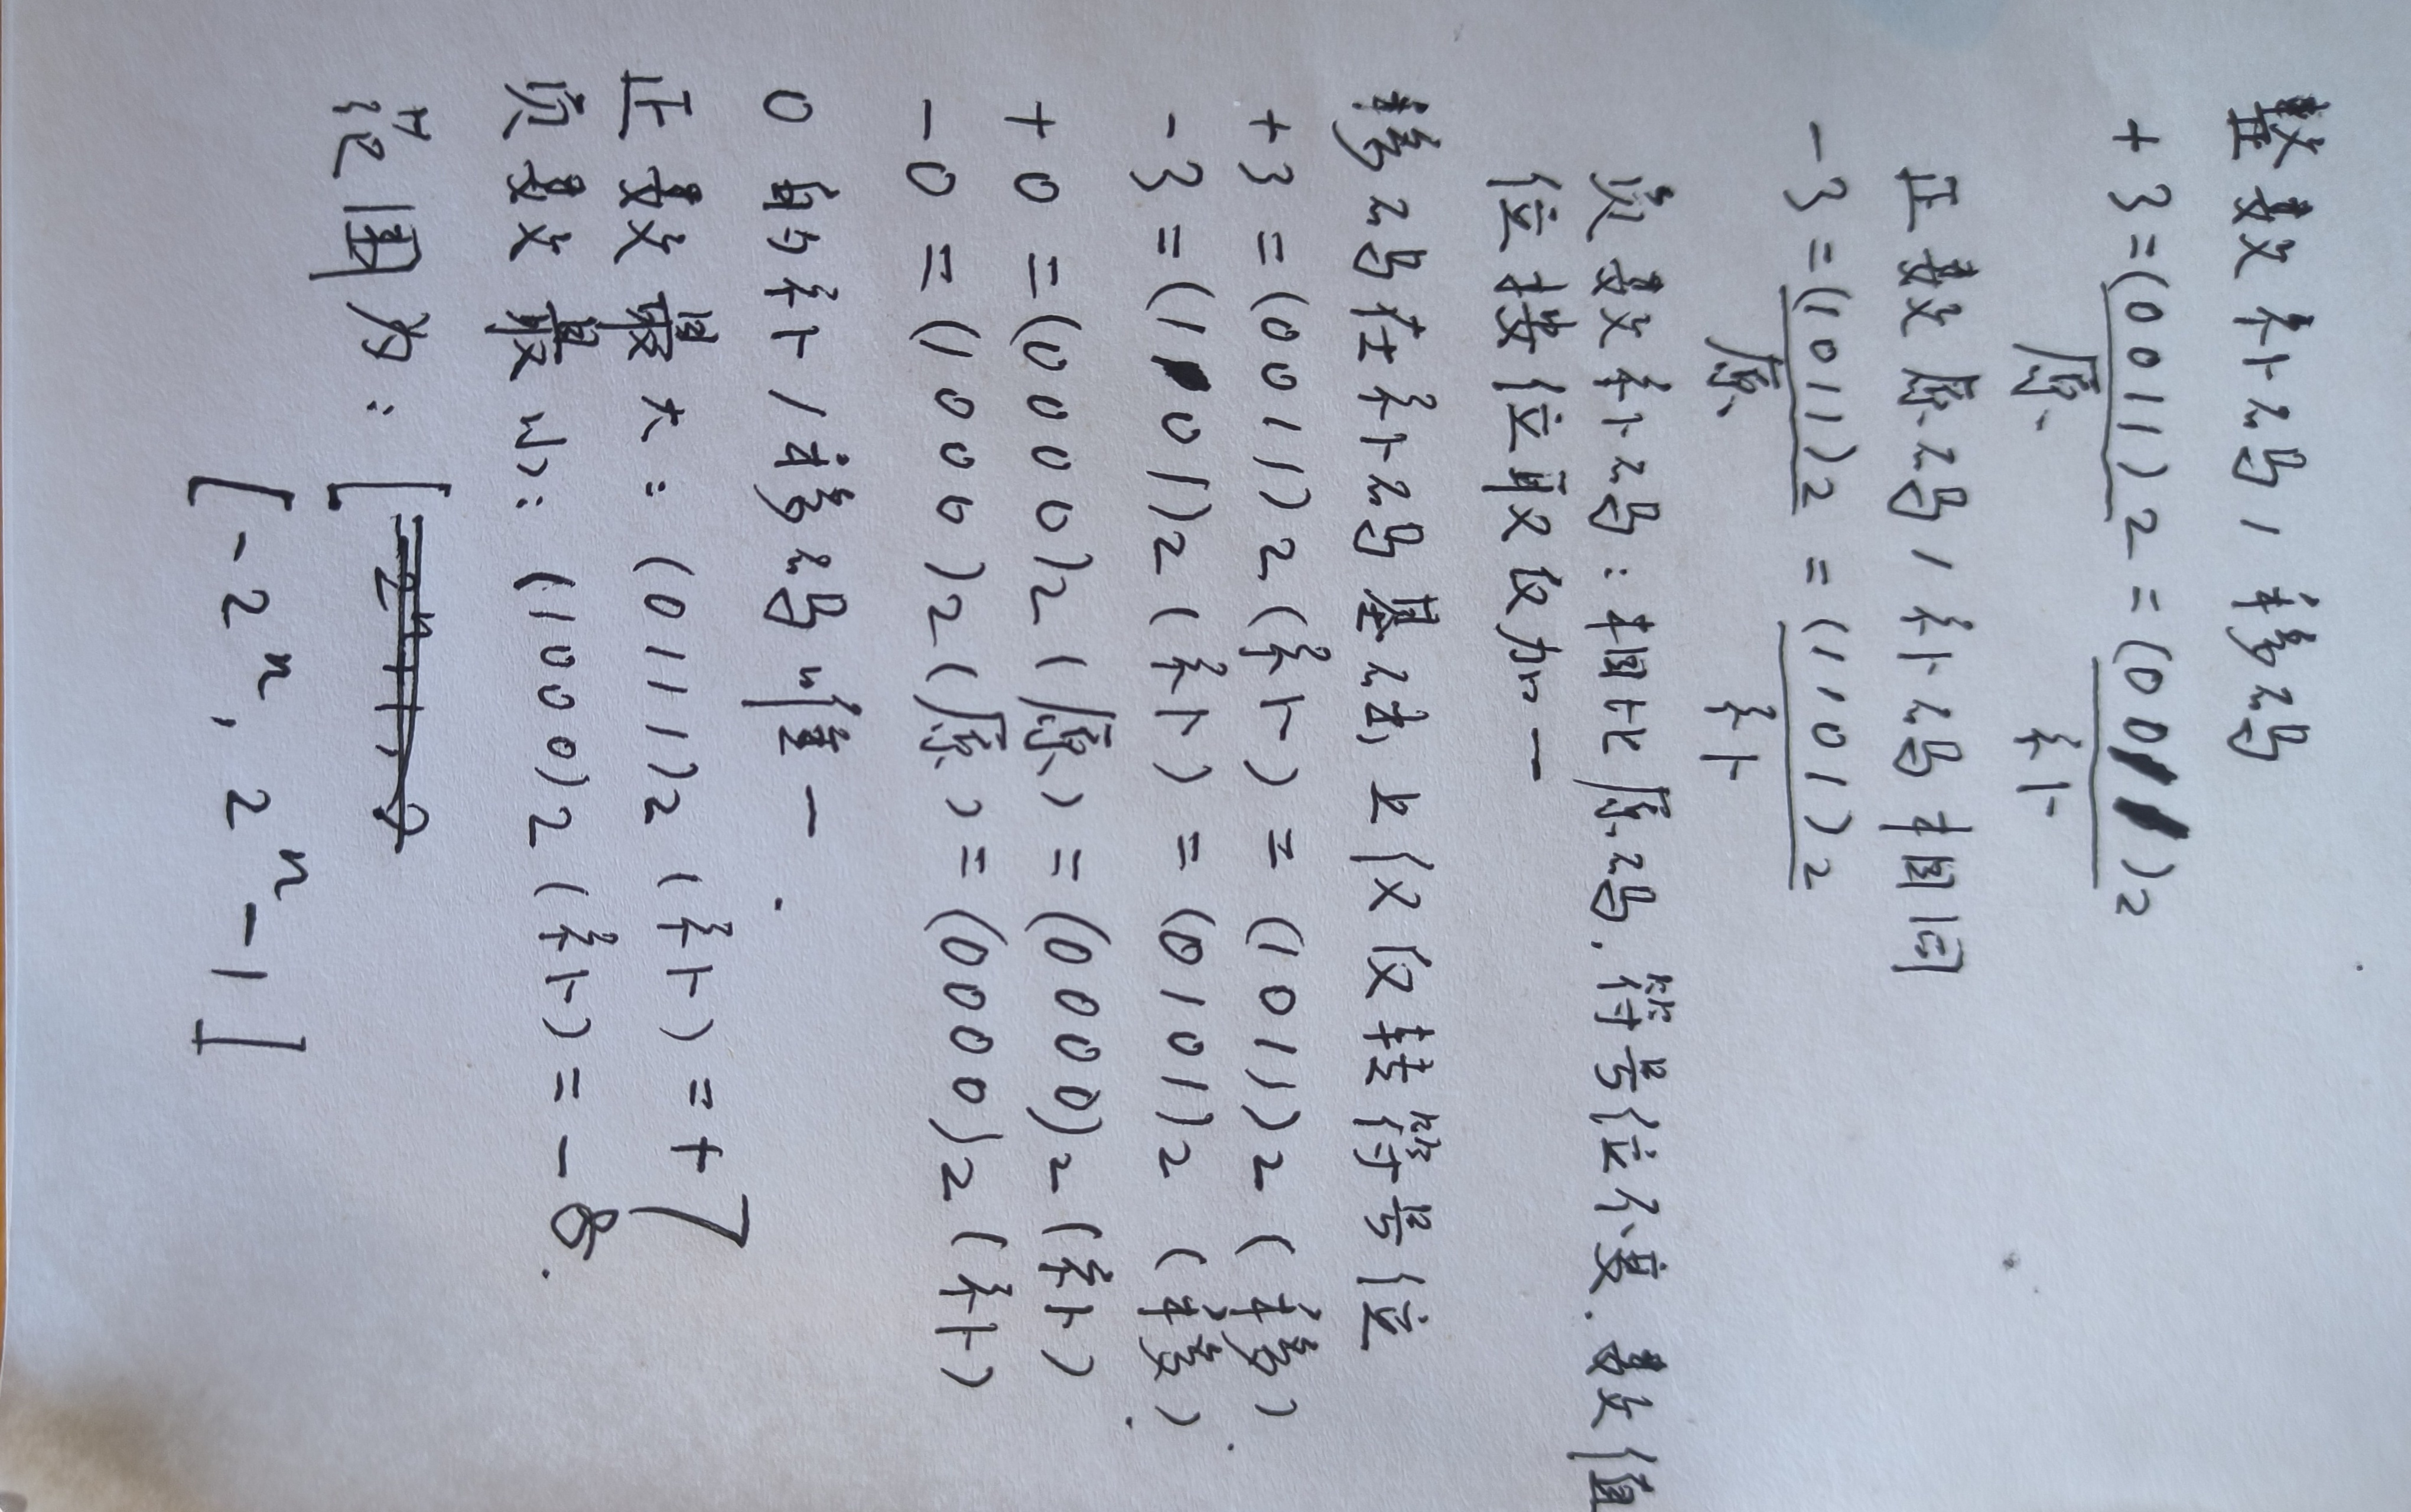 整数补码，移码
+3=(0011)2=(0011)2
原 补
正数原码/补码相同
-3=(1011)2=(1101)2
原 补
负数补码：相比原码，符号位不变，数值
位按位取反加一
移码在补码基础上仅反转符号位
+3=(0011)2(补)=(1011)2(移).
-3=(1101)2(补)=(0101)2(移).
+0=(0000)2(原)=(0000)2(补)
-0=(1000)2(原)=(0000)2(补)
0的补/移码唯一.
正数最大：(0111)2(补)=+7
负数最小：(1000)2(补)=-8.
范围为：[
[-2ⁿ, 2ⁿ-1]